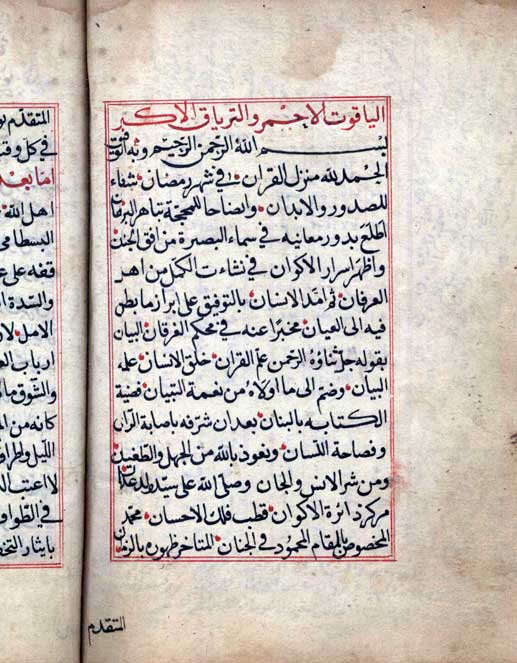 الياقوت الاحمر والترياق الاكبر
بسم الله الرحمن الرحيم وبه الوق
الحمد لله منزل القران في شهر رمضان شفاء
للصدور والابدان وايضاحا للمحجة
اطلع بدور معانيه في سماء البصيرة من افق الجنان
واظهر اسرار الاكوان في نشاءت الكمل من اهر
العرفان ثم امد الانسان بالتوفيق على ابراز ما بطن
فيه الى العيان مخبرا عنه في محكم الفرقان البيان
بقوله جل ثناؤه الرحمن علم القران خلق الانسان علمه
البيان وضم الى ما اولاه من نعمة التبيان فضيلة
الكتابه بالبنان بعد ان شرفه باصابة
وفصاحة اللسان ونعوذ بالله من الجهل والطغين
ومن شر الانس والجان وصلى الله على سيد ولد عدنان
مركز دائرة الاكوان قطب فلك الاحسان محمد
المخصوص بالمقام المحمود في الجنان المتاخر ظهوره بالزمان
المتقدم
المتقدم
في كل وقت
اما بعد
اهل الله
البسطامي
قفه على
والسدة
الامل
ارباب
والشوق
كانه من
الليل
لا اعتب
في الطواف
بايثار